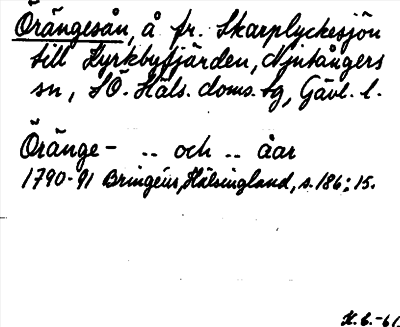 Örängesån, å fr. Skarplyckesjön
till Kyrkbyfjärden, Njutångers
sn, SÖ. Häls. doms. tg, Gävl. l.
Öränge- .. och .. åar
1790-91 Bringéus, Hälsingland, s. 186; 15.
H.G.-61.